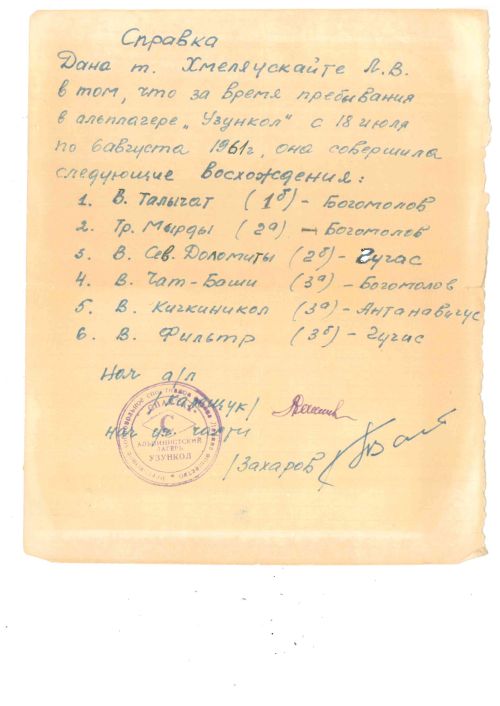 Справка
Дана т. Хмеляускайте Л.В.
в том, что за время пребывания
в альплагере „Узункол" с 18 июля
по 6 августа 1961г, она совершила
следующие восхождения:
1. В. Талычат (1б) - Богомолов
2. Тр. Мырды (2а) - Богомолов
3. В. Сев. Доломиты (2б) - Гучас
4. В. Чат-Баши (3а) - Богомолов
5. В. Кичкиникол (3а) - Антанавичус
6. В. Фильтр (3б) - Гучас
Нач а/л
нач уч. части
АЛЬПИНИСТСКИЙ
ЛАГЕРЬ
УЗУНКОЛ
/Захаров/